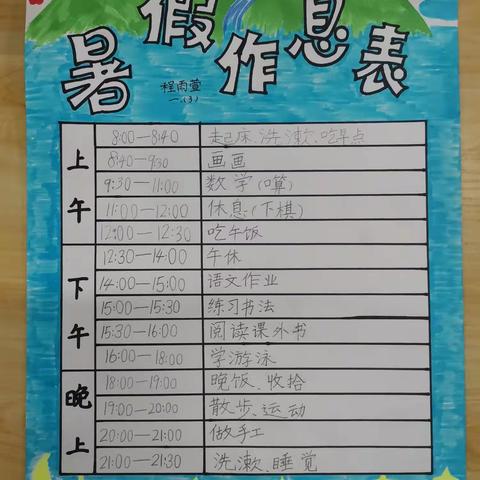 暑假作息表
程雨萱
一(3)
上午
8:00—8:40 起床、洗漱、吃早点
8:40—9:30 画画
9:30—11:00 数学(口算)
11:00—12:00 休息(下棋)
12:00—12:30 吃午饭
下午
12:30—14:00 午休
14:00—15:00 语文作业
15:00—15:30 练习书法
15:30—16:00 阅读课外书
16:00—18:00 学游泳
晚上
18:00—19:00 晚饭、收拾
19:00—20:00 散步、运动
20:00—21:00 做手工
21:00—21:30 洗漱、睡觉